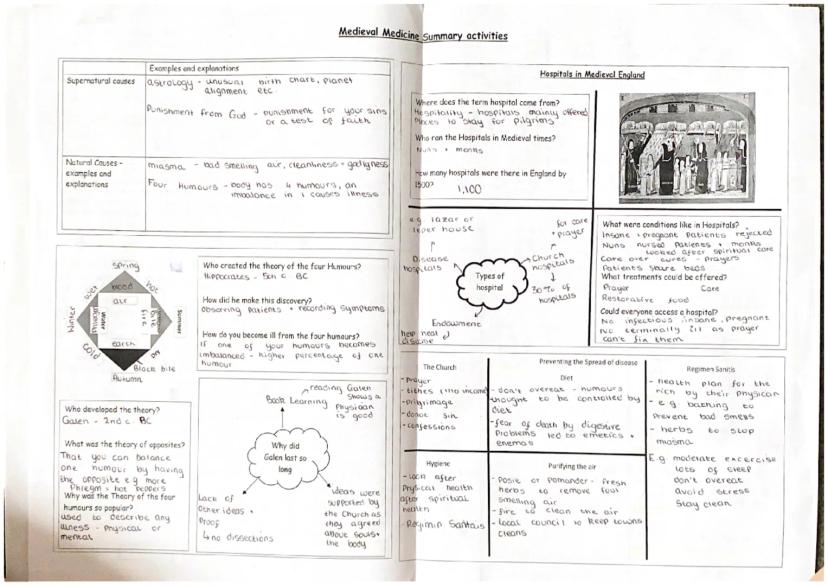 Medieval Medicine Summary activities
Examples and explanations
Supernatural causes
astrology - unusual birth chart, planet
alignment etc.
Punishment from God - punishment for your sins
or a test of faith
Natural Causes -
examples and
explanations
miasma - bad smelling air, cleanliness + godliness
Four Humours - body has 4 humours, an
imbalance in 1 causes illness
spring
wet
hot
blood
air
Winter
Summer
fire
earth
cold
dry
Black bile
Autumn
Who created the theory of the four Humours?
Hippocrates - 5th c BC
How did he make this discovery?
observing patients + recording symptoms
How do you become ill from the four humours?
If one of your humours becomes
imbalanced - higher percentage of one
humour
Who developed the theory?
Galen - 2nd c. BC
What was the theory of opposites?
That you can balance
one humour by having
the opposite e.g more
Phlegm = hot peppers
Why was the Theory of the four
humours so popular?
used to describe any
illness - physical or
mental
reading Galen
shows a
physician
is good
Book Learning
Why did
Galen last so
long
Lack of
other ideas +
proof
↳ no dissections
ideas were
supported by
the Church as
they agreed
about souls +
the body
Hospitals in Medieval England
Where does the term hospital come from?
Hospitality - hospitals mainly offered
places to stay for pilgrims
Who ran the Hospitals in Medieval times?
Nuns + monks
How many hospitals were there in England by
1500?
1,100
e.g lazar or
leper house
Disease
hospitals
for care
+ prayer
Church
hospitals
30% of
hospitals
Types of
hospital
Endowment
help heal
disease
What were conditions like in Hospitals?
Insane + pregnant patients rejected
Nuns nursed patients + monks
looked after spiritual care
Care over cures - prayers
Patients share beds
What treatments could be offered?
Prayer Care
Restorative food
Could everyone access a hospital?
No infectious, insane, pregnant
No terminally ill as prayer
can't fix them
Preventing the Spread of disease
The Church
- prayer
- tithes (1/10 income)
- pilgrimage
- donot sin
- confessions
Diet
- don't overeat - humours
thought to be controlled by
diet
- fear of death by digestive
problems led to emetics +
enemas
Regimen Sanitis
- health plan for the
rich by their physican
- e.g bathing to
prevent bad smells
- herbs to stop
miasma
E.g. moderate excercise
lots of sleep
don't overeat
avoid stress
Stay clean
Hygiene
- look after
physical health
after spiritual
health
- Regimin Sanitais
Purifying the air
- Posie or pomander - fresh
herbs to remove foul
smelling air
- fire to clean the air
- local council to keep towns
cleans